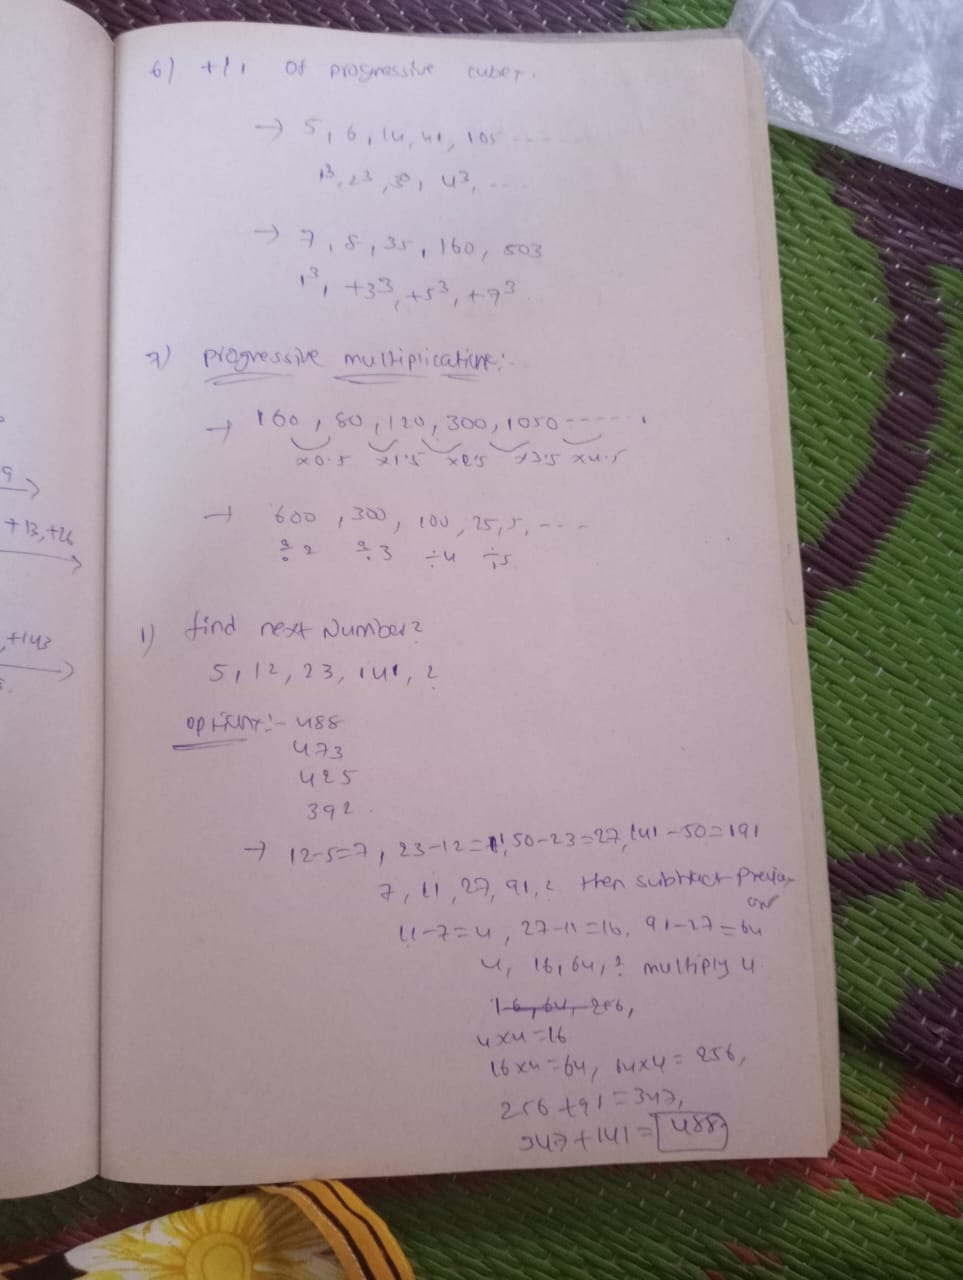 6) +/- of progressive cubes.
→ 5, 6, 14, 41, 105 -----
1³, 2³, 3³, 4³, ---
→ 7, 8, 35, 160, 503
1³, +3³, +5³, +7³
7) progressive multiplications:-
→ 160, 80, 120, 300, 1050 -----
x0.5 x1.5 x2.5 x3.5 x4.5
→ 600, 300, 100, 25, 5, ---
÷2 ÷3 ÷4 ÷5
9
+13, +26
, +143
1) find next Number?
5, 12, 23, 141, ?
options:- 488
473
425
392.
→ 12-5=7, 23-12=11, 50-23=27, 141-50=191
7, 11, 27, 91, ? then subtract previous
one
11-7=4, 27-11=16, 91-27=64
4, 16, 64, ? multiply 4
16, 64, 256,
4x4=16
16x4=64, 64x4=256,
256+91=347,
347+141=488